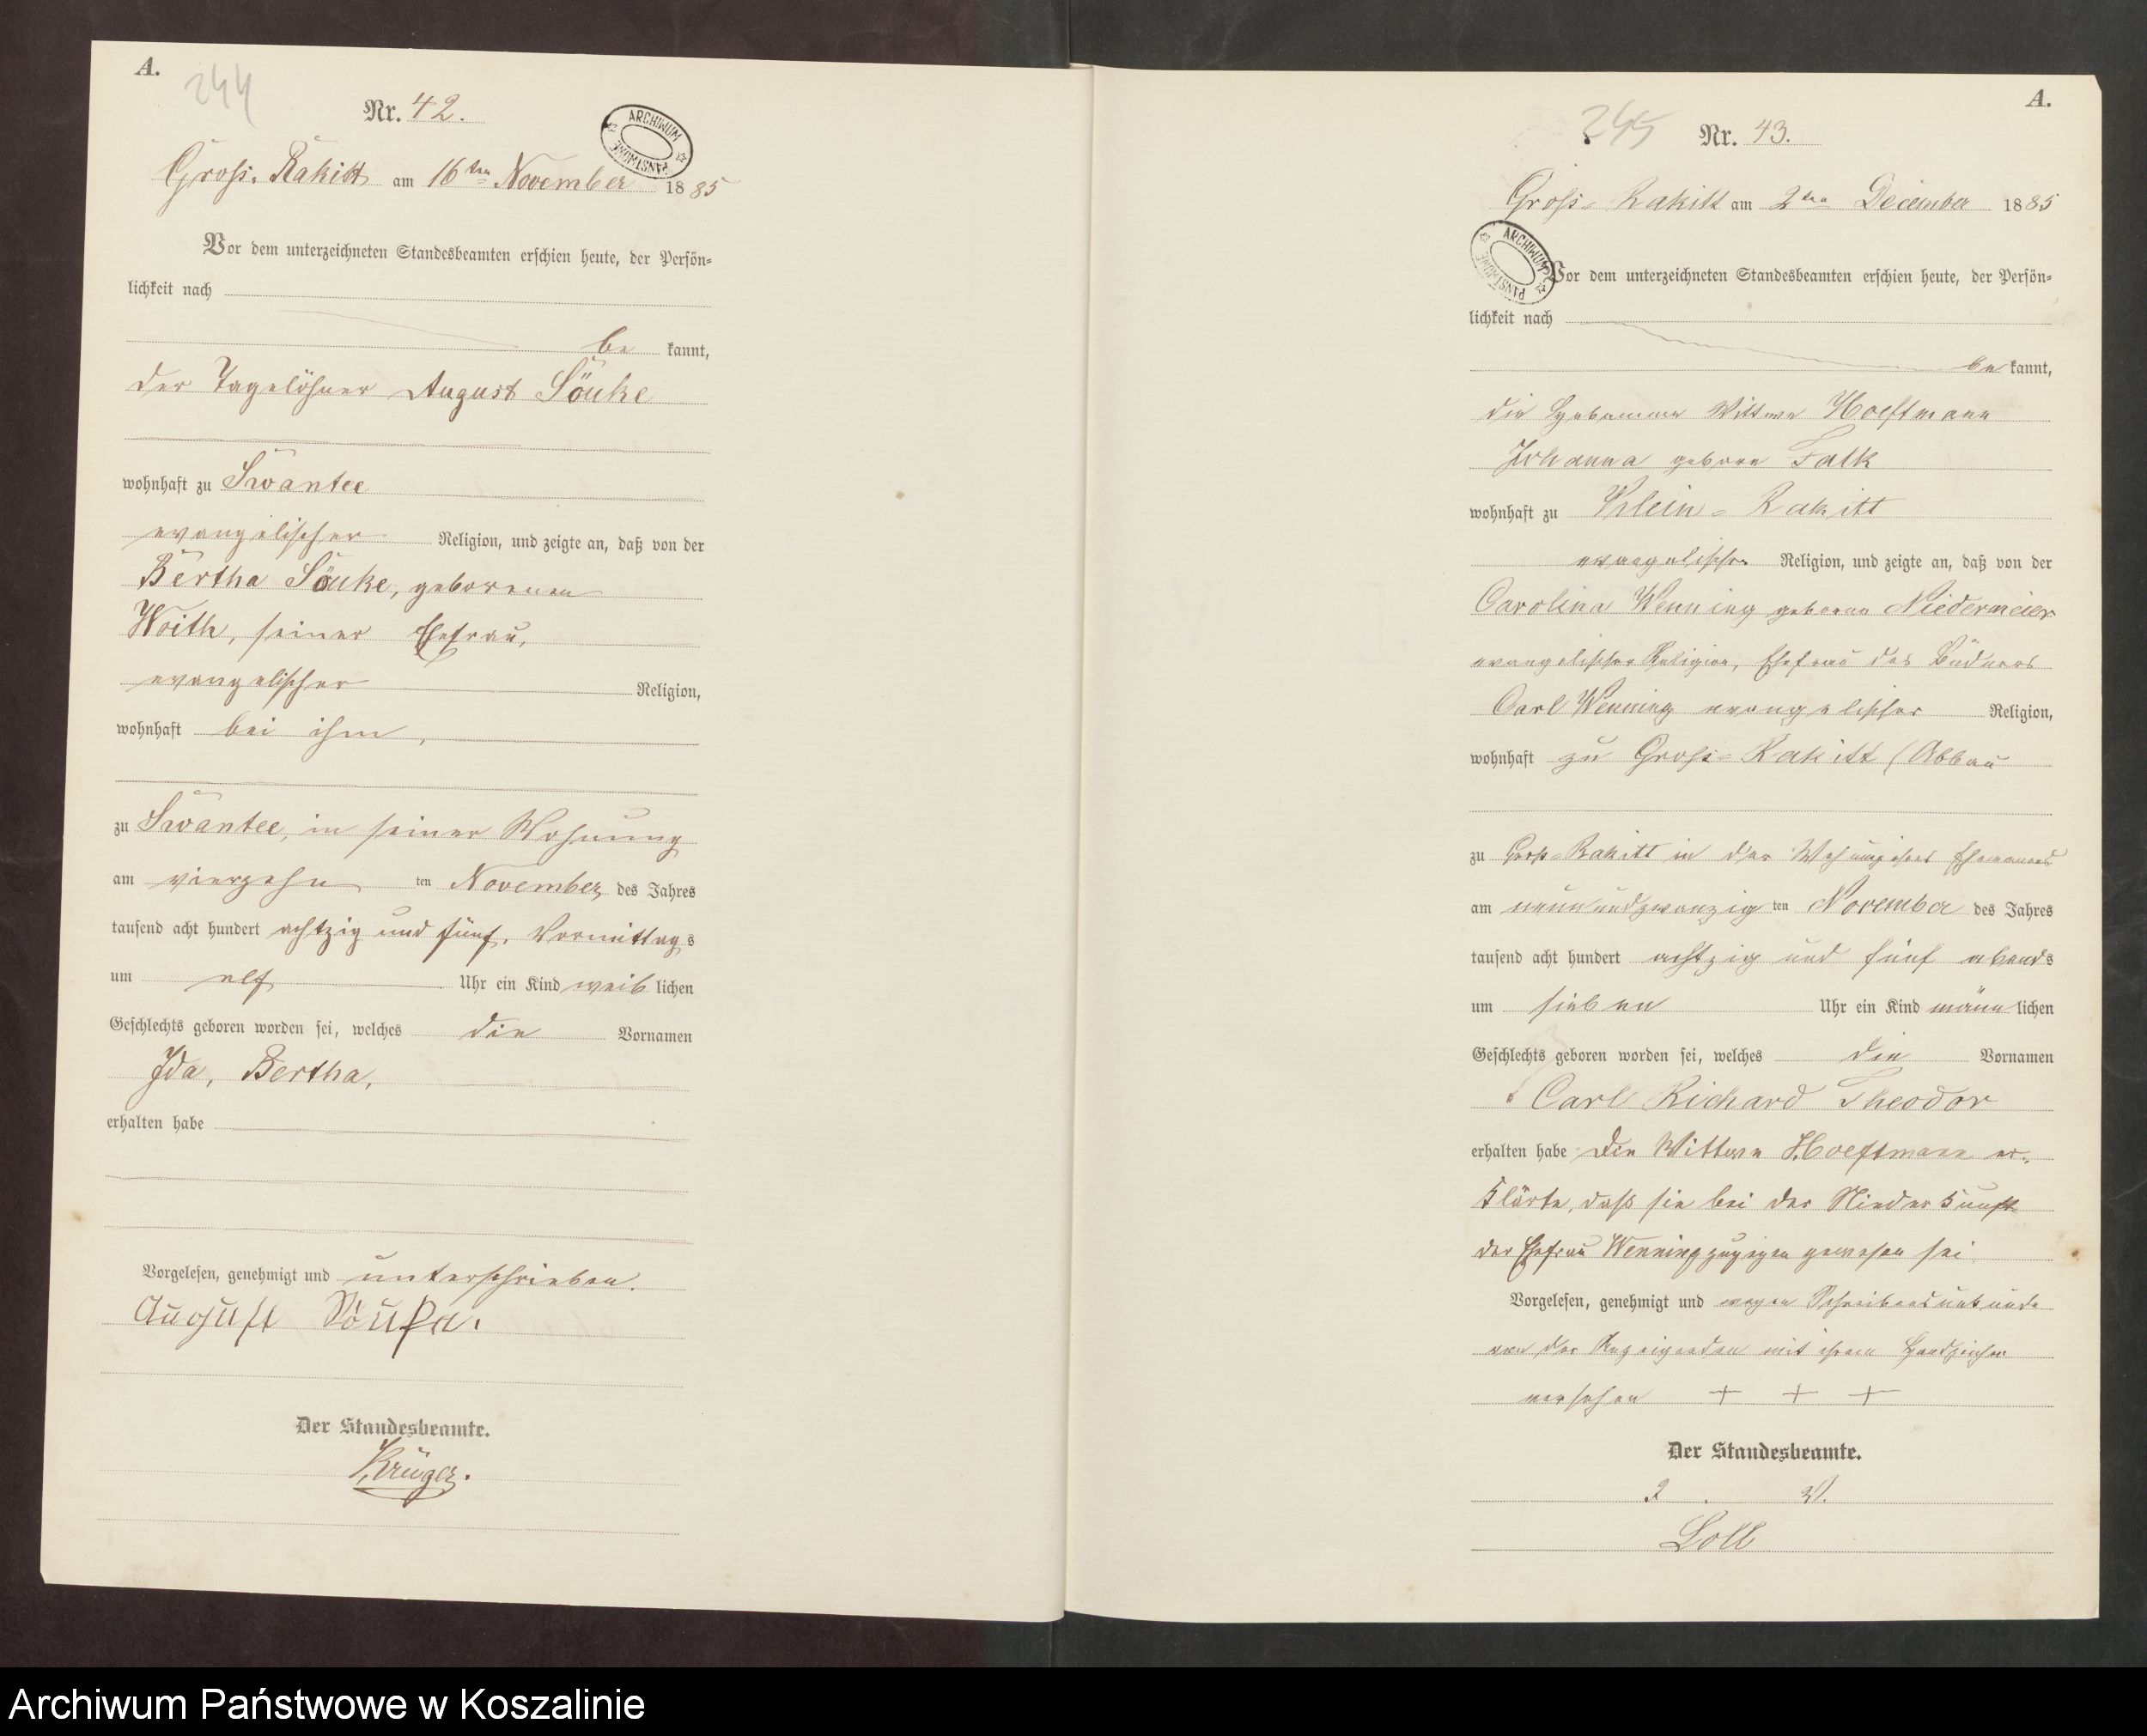 A.
244
Nr. 42.
ARCHIWUM PAŃSTWOWE
Gross-Rakitt am 16ten November 1885
Vor dem unterzeichneten Standesbeamten erschien heute, der Persön=
lichkeit nach
be kannt,
der Tagelöhner August
wohnhaft zu Swantee
evangelischer Religion, und zeigte an, daß von der
Bertha geborenen
Woith, seiner Ehefrau,
evangelischer Religion,
wohnhaft bei ihm,
zu Swantee, in seiner Wohnung
am vierzehn ten November des Jahres
tausend acht hundert achtzig und fünf, Vormittags
um elf Uhr ein Kind weib lichen
Geschlechts geboren worden sei, welches die Vornamen
Ida, Bertha,
erhalten habe
Vorgelesen, genehmigt und unterschrieben.
August
Der Standesbeamte.
Krüger.
A.
245
Nr. 43.
Gross-Rakitt am 2ten December 1885
ARCHIWUM PAŃSTWOWE
Vor dem unterzeichneten Standesbeamten erschien heute, der Persön=
lichkeit nach
be kannt,
die Hebamme Wittwe Hoeftmann
Johanna geborne Falk
wohnhaft zu Klein-Rakitt
evangelischer Religion, und zeigte an, daß von der
Carolina Wenning geborne Niedermeier
evangelischer Religion, Ehefrau des Büdners
Carl Wenning evangelischer Religion,
wohnhaft zu Gross-Rakitt (Abbau
zu Gross-Rakitt in der Wohnung ihres Ehemannes
am neunundzwanzig ten November des Jahres
tausend acht hundert achtzig und fünf abends
um sieben Uhr ein Kind männ lichen
Geschlechts geboren worden sei, welches die Vornamen
Carl Richard Theodor
erhalten habe Die Wittwe Hoeftmann er=
klärte, daß sie bei der Niederkunft
der Ehefrau Wenning zugegen gewesen sei.
Vorgelesen, genehmigt und wegen Schreibensunkunde
von der Anzeigenden mit ihrem Handzeichen
versehen + + +
Der Standesbeamte.
I. V.
Loll
Archiwum Państwowe w Koszalinie